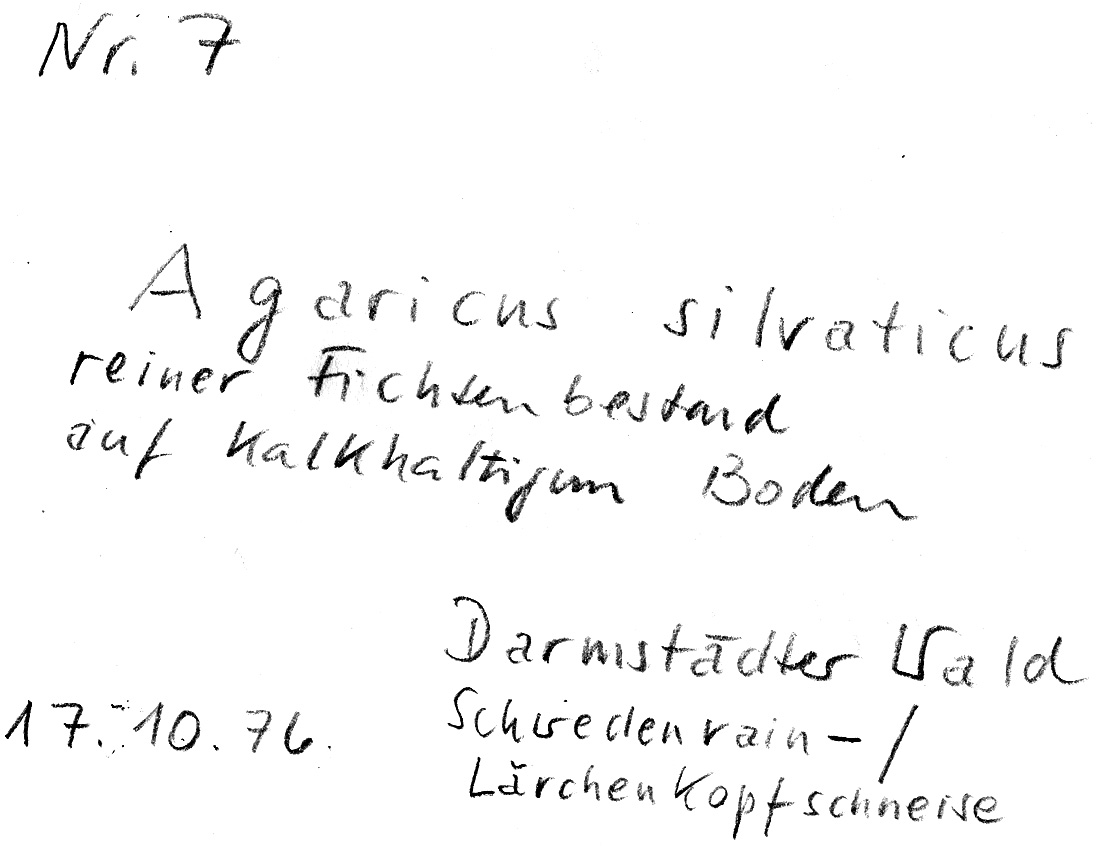 Nr. 7
Agaricus silvaticus
reiner Fichtenbestand
auf Kalkhaltigem Boden
Darmstädter Wald
17.10.76.
Schwedenrain-/
Lärchenkopfschneise